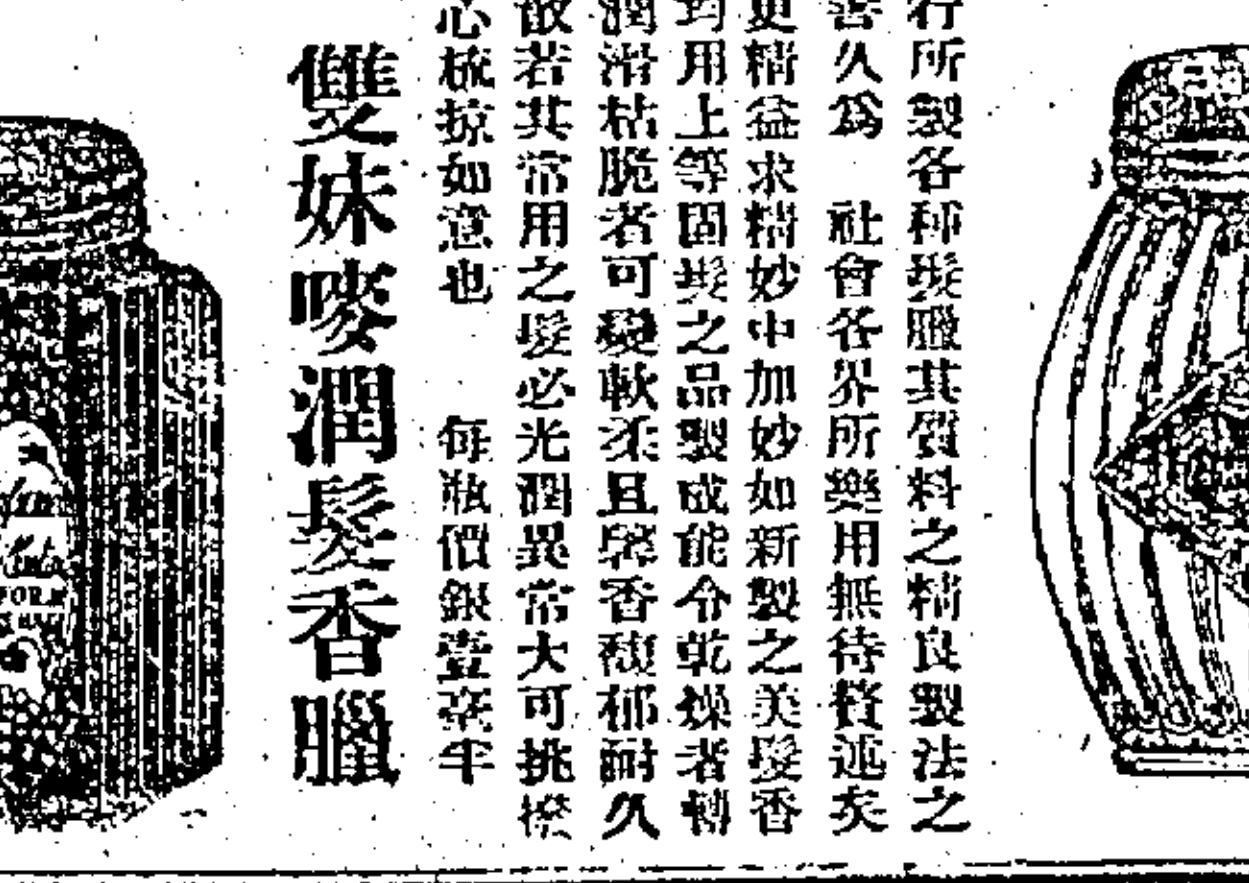 行所製各種髮臘其質料之精良製法之
善久爲 社會各界所樂用無待贅述矣
更精益求精妙中加妙如新製之美髮香
均用上等固髮之品製成能令乾燥者轉
潤滑枯脆者可變軟柔且馨香馥郁耐久
散若其常用之髮必光潤異常大可挑撩
心梳掠如意也 每瓶價銀壹毫半
雙妹嘜潤髮香臘